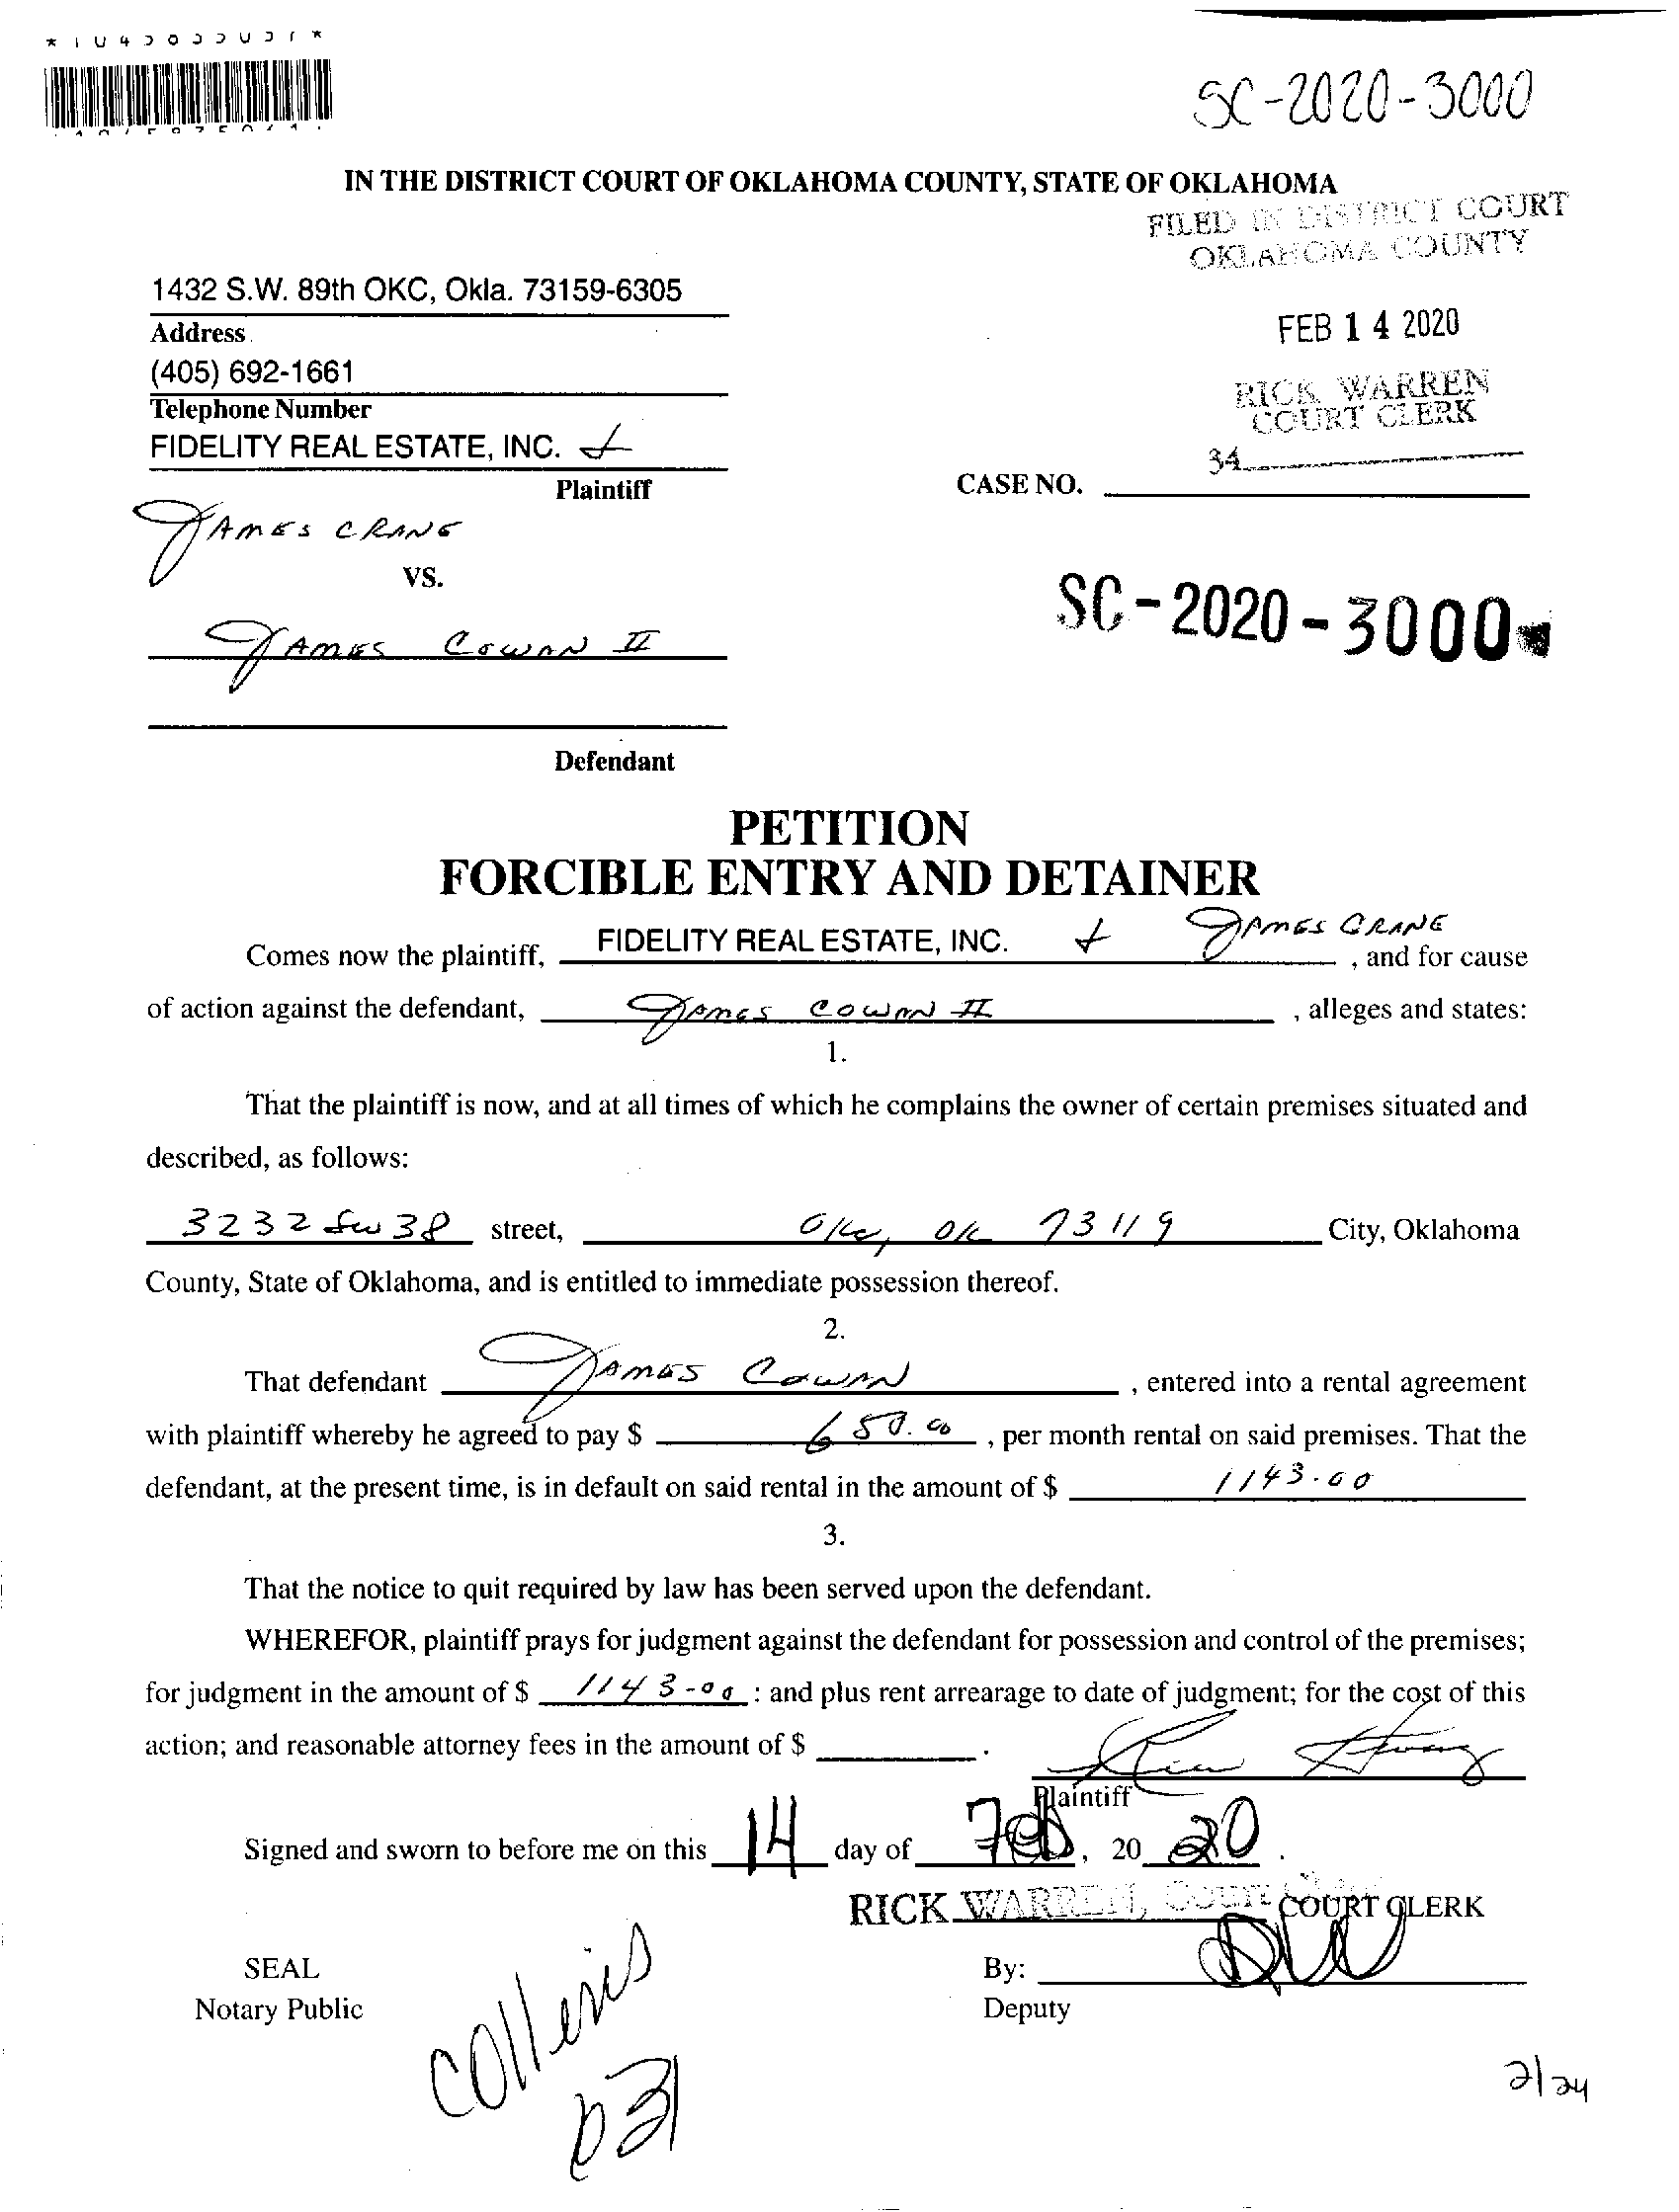 SC-2020-3000
IN THE DISTRICT COURT OF OKLAHOMA COUNTY, STATE OF OKLAHOMA
FILED IN DISTRICT COURT
OKLAHOMA COUNTY
1432 S.W. 89th OKC, Okla. 73159-6305
Address
FEB 14 2020
(405) 692-1661
Telephone Number
RICK WARREN
COURT CLERK
FIDELITY REAL ESTATE, INC. +
34
Plaintiff
CASE NO.
JAMES CRANE
VS.
SC-2020-3000
JAMES COWAN II
Defendant
PETITION
FORCIBLE ENTRY AND DETAINER
Comes now the plaintiff, FIDELITY REAL ESTATE, INC. + JAMES CRANE, and for cause
of action against the defendant, JAMES COWAN II, alleges and states:
1.
That the plaintiff is now, and at all times of which he complains the owner of certain premises situated and
described, as follows:
3232 SW 38 street, OKC, OK 73119 City, Oklahoma
County, State of Oklahoma, and is entitled to immediate possession thereof.
2.
That defendant JAMES COWAN, entered into a rental agreement
with plaintiff whereby he agreed to pay $ 650.00, per month rental on said premises. That the
defendant, at the present time, is in default on said rental in the amount of $ 1143.00
3.
That the notice to quit required by law has been served upon the defendant.
WHEREFOR, plaintiff prays for judgment against the defendant for possession and control of the premises;
for judgment in the amount of $ 1143-00 : and plus rent arrearage to date of judgment; for the cost of this
action; and reasonable attorney fees in the amount of $ .
Plaintiff
Signed and sworn to before me on this 14 day of Feb, 20 20.
RICK WARREN, COURT CLERK
SEAL
By:
Notary Public
Deputy
2/24